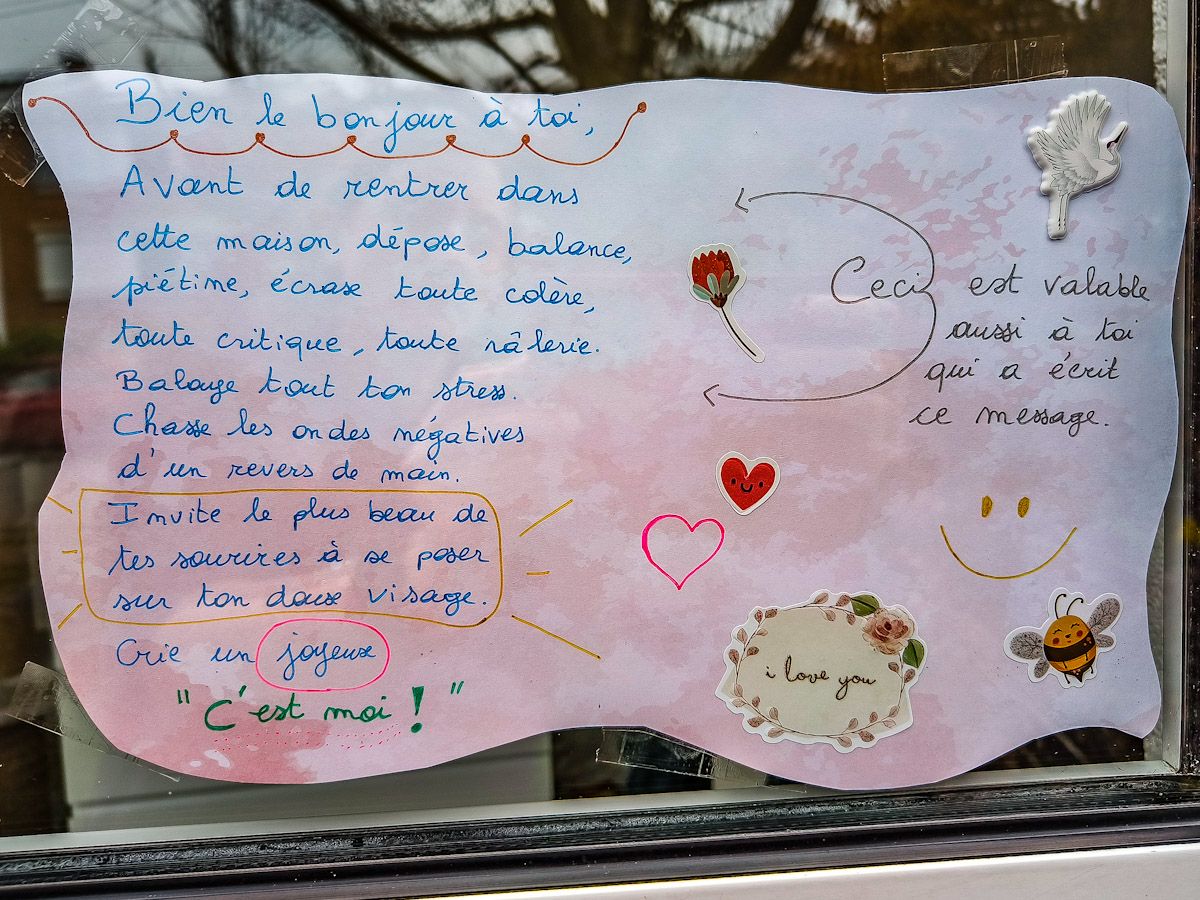 Bien le bonjour à toi,
Avant de rentrer dans
cette maison, dépose, balance,
piétine, écrase toute colère,
toute critique, toute râlerie.
Balaye tout ton stress.
Chasse les ondes négatives
d'un revers de main.
Invite le plus beau de
tes sourires à se poser
sur ton doux visage.
Crie un joyeux
"C'est moi !"
Ceci est valable
aussi à toi
qui a écrit
ce message.
i love you